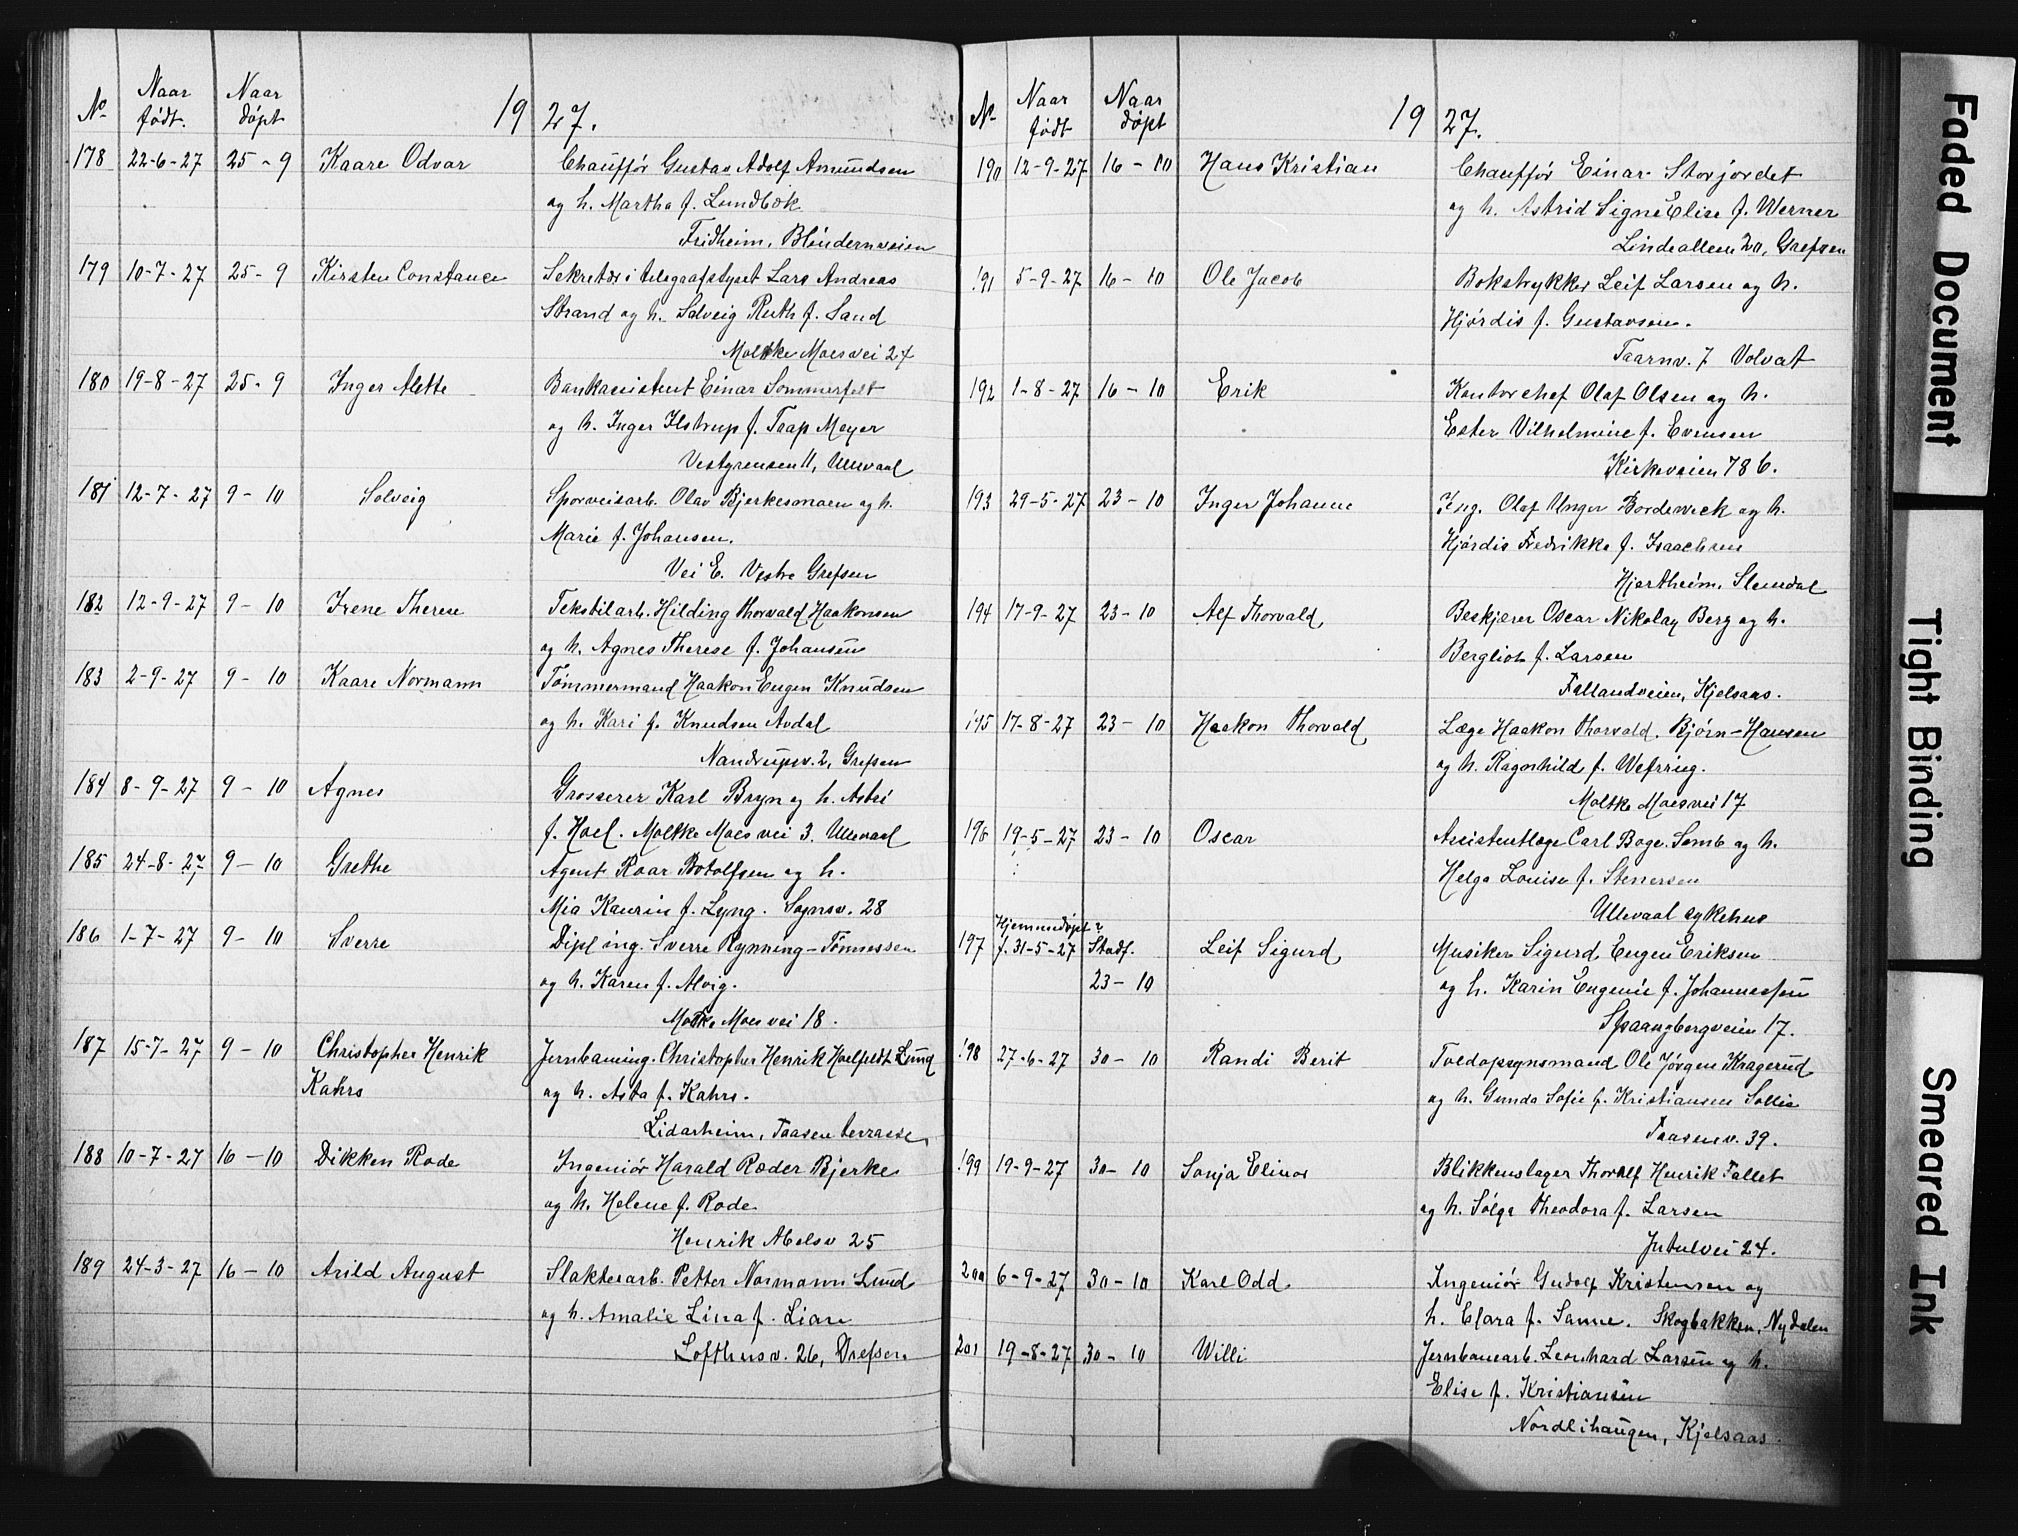 No Naar født. Naar døpt 19 27.
178 22-6-27 25-9 Kaare Odvar Chauffør Gustav Adolf Amundsen
og h. Martha f. Lundbøk
Fridheim, Blindernveien
179 10-7-27 25-9 Kirsten Constance Sekretær i telegrafstyret Lars Andreas
Strand og h. Solveig Ruth f. Sand
Moltke Moes vei 24
180 19-8-27 25-9 Inger Alette Bankassistent Einar Sommerfelt
og h. Inger Ilstrup f. Trap Meyer
Vestgrensen 11, Ullevaal
181 12-7-27 9-10 Solveig Sporveisarb. Olav Bjerkesmoen og h.
Marie f. Johansen.
Vei E. Vestre Grefsen
182 12-9-27 9-10 Irene Therese Tekstilarb. Hilding Thorvald Haakonsen
og h. Agnes Therese f. Johansen
183 2-9-27 9-10 Kaare Normann Tømmermand Haakon Eugen Knudsen
og h. Kari f. Knudsen Avdal
Nandrupsv. 2, Grefsen
184 8-9-27 9-10 Agnes Grosserer Karl Bryn og h. Astri
f. Hoel. Moltke Moes vei 3. Ullevaal
185 24-8-27 9-10 Grethe Agent Roar Botolfsen og h.
Mia Kaurin f. Lyng. Sognsv. 28
186 1-7-27 9-10 Sverre Dipl ing. Sverre Rynning-Tønnessen
og h. Karen f. Alvig.
Moltke Moes vei 18.
187 15-7-27 9-10 Christopher Henrik Jernbaneing. Christopher Henrik Holfeldt Lund
Kahrs og h. Asta f. Kahrs.
Lidarheim, Taasen terrasse
188 10-7-27 16-10 Dikken Rode Ingeniør Harald Ræder Bjerke
og h. Helene f. Rode
Henrik Abelsv 25
189 24-3-27 16-10 Arild August Slakterarb. Petter Normann Lund
og h. Amalie Lina f. Lian
Lofthusv. 26, Grefsen
No Naar født Naar døpt 19 27.
190 12-9-27 16-10 Hans Kristian Chauffør Einar Storjordet
og h. Astrid Signe Elise f. Werner
Lindealleen 20, Grefsen
191 5-9-27 16-10 Ole Jacob Boktrykker Leif Larsen og h.
Hjørdis f. Gustavsen.
Taarnv. 7 Volvat
192 1-8-27 16-10 Erik Kontorchef Olaf Olsen og h.
Ester Vilhelmine f. Evensen
Kirkeveien 78 b.
193 29-5-27 23-10 Inger Johanne Ing. Olaf Unger Bordewick og h.
Hjørdis Fredrikke f. Isaachsen
Hjertheim, Slemdal
194 17-9-27 23-10 Alf Thorvald Beskjærer Oscar Nikolay Berg og h.
Bergliot f. Larsen
Fallandveien, Kjelsaas.
195 17-8-27 23-10 Haakon Thorvald Læge Haakon Thorvald Bjørn-Hansen
og h. Ragnhild f. Wefring.
Moltke Moes vei 17
196 19-5-27 23-10 Oscar Assistentlæge Carl Boge Semb og h.
Helga Louise f. Stenersen
Ullevaal sykehus
Hjemmedøpt
197 f. 31-5-27 Stadf. Leif Sigurd Musiker Sigurd Eugen Eriksen
23-10 og h. Karin Eugenie f. Johannessen
Spaangbergveien 17.
198 27-6-27 30-10 Randi Berit Toldopsynsmand Ole Jørgen Kragerud
og h. Gunda Sofie f. Kristiansen Sollie
Taasenv. 39.
199 19-9-27 30-10 Sonja Elinor Blikkenslager Thoralf Henrik Fallet
og h. Solga Theodora f. Larsen
Jutulvei 24.
200 6-9-27 30-10 Karl Odd Ingeniør Gudolf Kristensen og
h. Clara f. Sanne. Skogbakken, Nydalen
201 19-8-27 30-10 Willi Jernbanearb. Leonhard Larsen og h.
Elise f. Kristiansen
Nordlihaugen, Kjelsaas.
Faded Document
Tight Binding
Smeared Ink